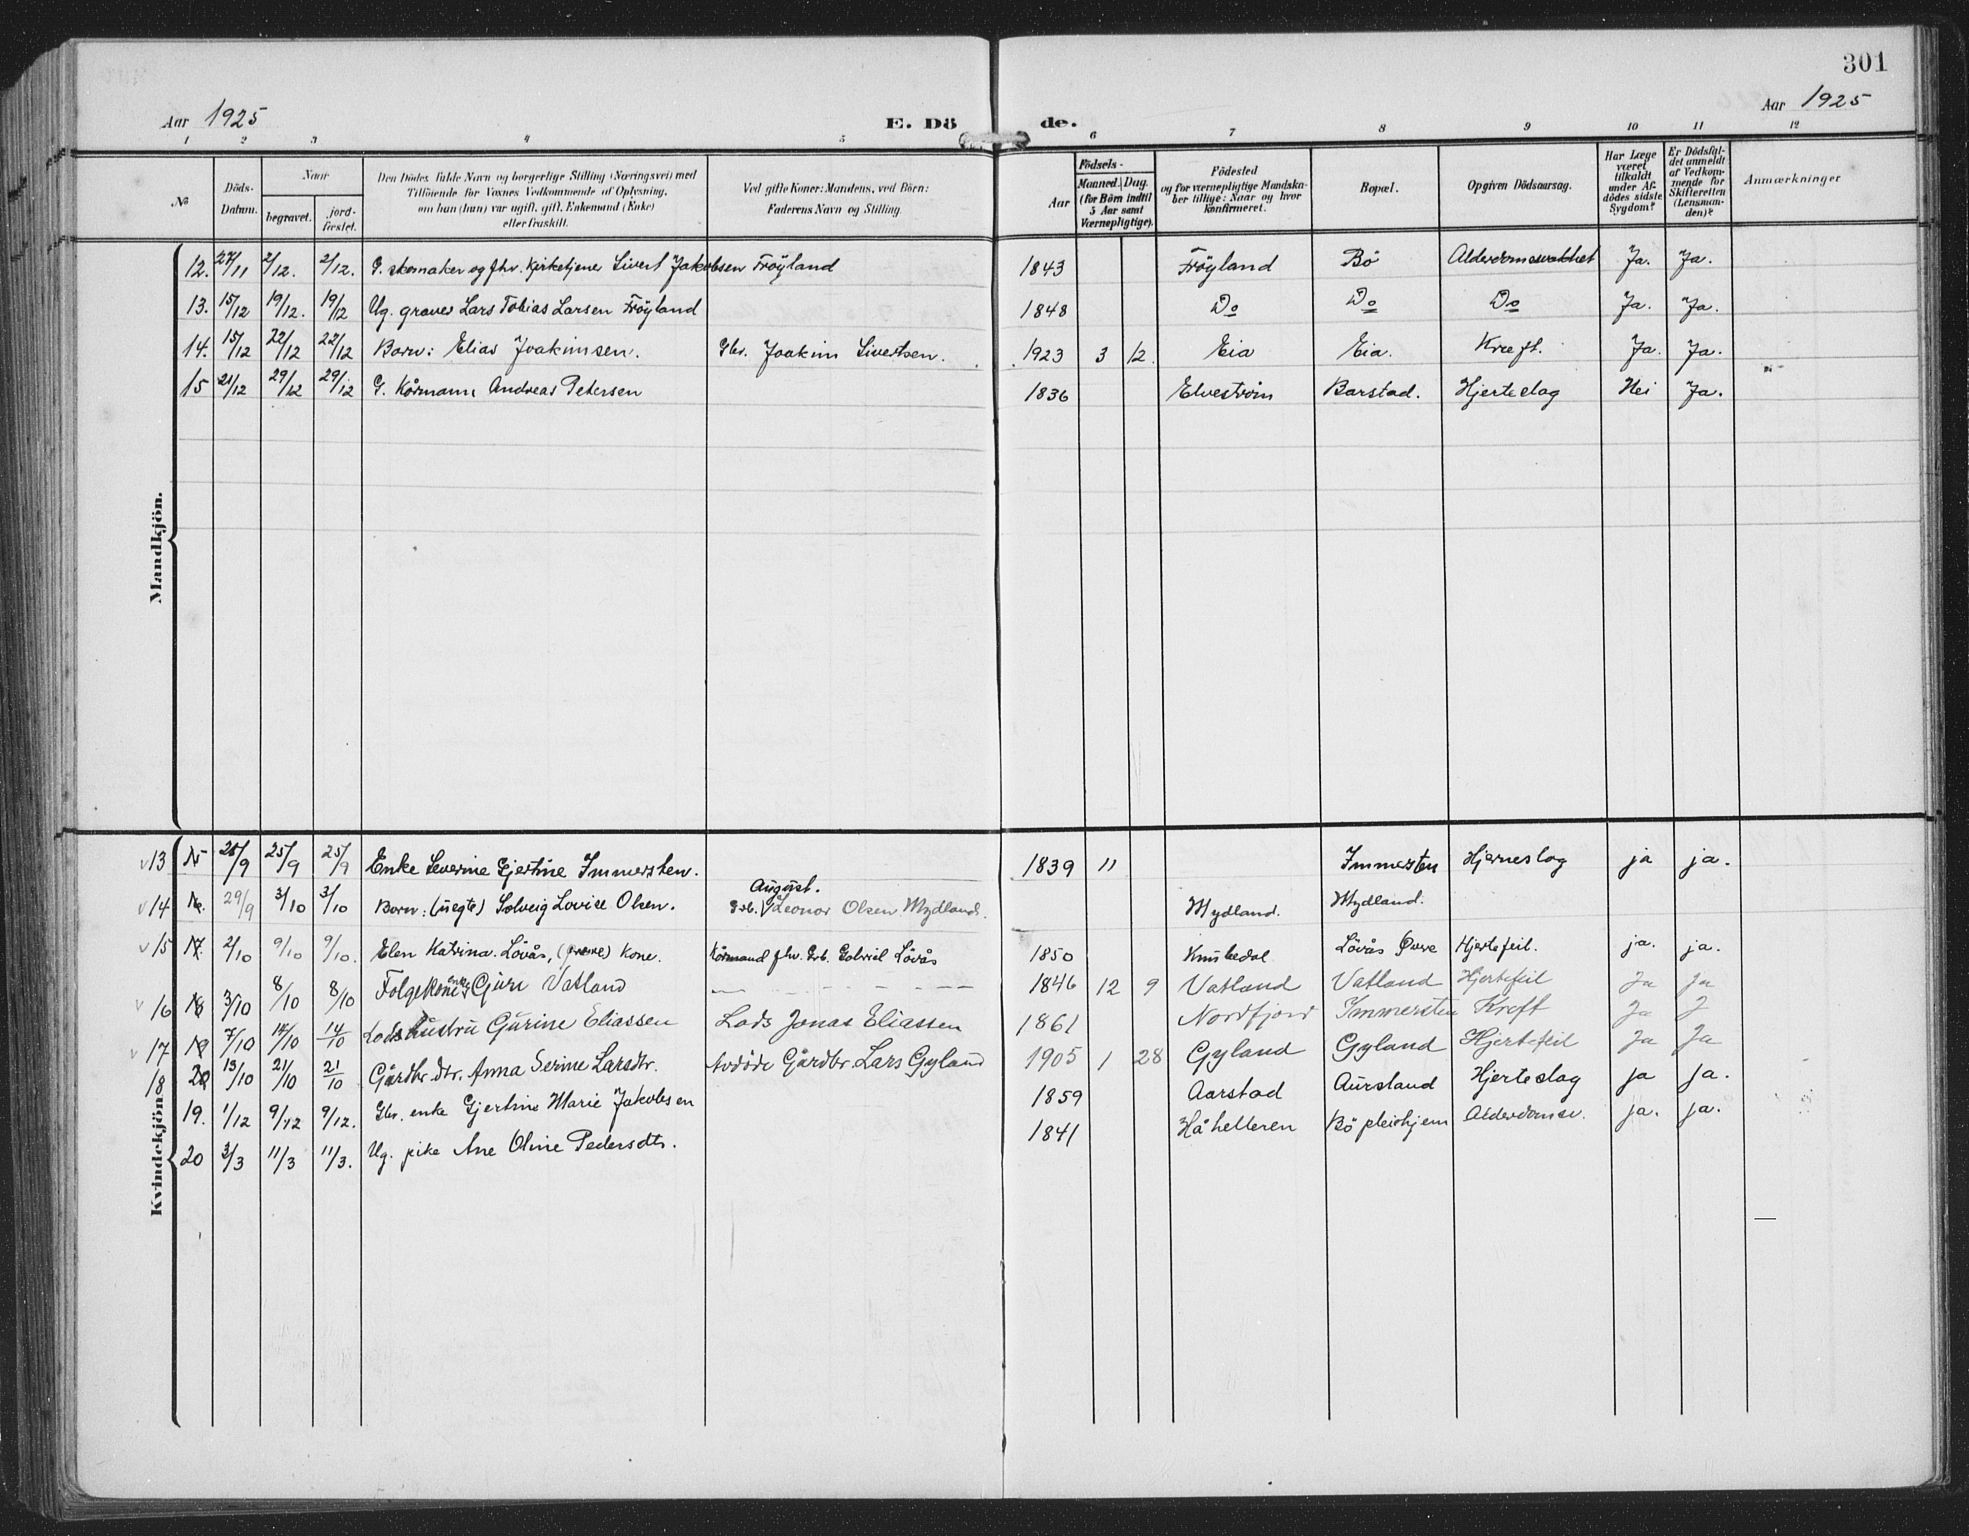 301
Aar 1925
E. Dö de.
Aar 1925
1 2 3 4 5 6 7 8 9 10 11 12
No
Döds-Datum.
Naar
begravet.
jord-fæstet.
Den Dödes fulde Navn og borgerlige Stilling (Næringsvei) med
Tilföiende for Voxnes Vedkommende af Oplysning,
om han (hun) var ugift, gift, Enkemand (Enke)
eller fraskilt.
Ved gifte Koner: Mandens, ved Börn:
Faderens Navn og Stilling.
Födsels-
Aar
Maaned. Dag.
(for Börn indtil
5 Aar samt
Værnepligtige).
Födested
og for værnepligtige Mandska-
ber tillige: Naar og hvor
konfirmeret.
Bopæl.
Opgiven Dödsaarsag.
Har Læge
været
tilkaldt
under Af-
dödes sidste
Sygdom?
Er Dödsfal-
det anmeldt
af Vedkom-
mende for
Skifteretten
(Lensman-
den)?
Anmærkninger
Mandkjön.
12. 27/11 2/12. 2/12. G. skomaker og fhv. kirketjener Sivert Jakobsen Fröyland 1843 Fröyland Bö Ja. Ja.
13. 15/12 19/12. 19/12 Ug. graver Lars Tobias Larsen Fröyland 1848 Do Do Do Ja. Ja.
14. 15/12 22/12 22/12 Barn: Elias Joakimsen. Gbr. Joakim Sivertsen. 1923 3 12. Eia Eia. Kreft. Ja. Ja.
15 21/12 29/12 29/12 G. Kårmann Andreas Petersen 1836 Elvestrøm Barstad. Hjerteslag Nei Ja.
Kvindekjön.
13 15 25/9 25/9 Enke Severine Gjertine Immersten. 1839 11 Immersten Hjerneslag ja ja.
14 29/9 3/10 3/10 Barn: (uegte) Solveig Lovise Olsen. August. Leonor Olsen Mydland. Mydland. Mydland.
15 17. 2/10 9/10 9/10. Elen Katrina Lövås, Kone. Kårmand fhv. Grb. Gabriel Lövås 1850 Lövås Øvre Hjertefeil. ja. ja.
16 18 3/10 8/10 8/10 Folgekone enke Guri Vatland — 1846 12 9 Vatland Vatland Hjertefeil Ja Ja
17 19 7/10 14/10 14/10 Lodshustru Gurine Eliassen Lods Jonas Eliassen 1861 Nordfjord Immersten Kreft Ja J
18 20 13/10 21/10 21/10 Gårdbr. dtr. Anna Serine Larsdtr. Avdöde Gårdbr. Lars Gyland 1905 1 28 Gyland Gyland Hjertefeil Ja Ja
19. 1/12 9/12 9/12. Gbr. enke Gjertine Marie Jakobsen 1859 Aarstad Aursland Hjerteslag ja ja.
20 3/3 11/3 11/3. Ug. pike Ane Oline Pedersdtr. 1841 Håhelleren Bö pleiehjem Alderdomsv. ja. ja.